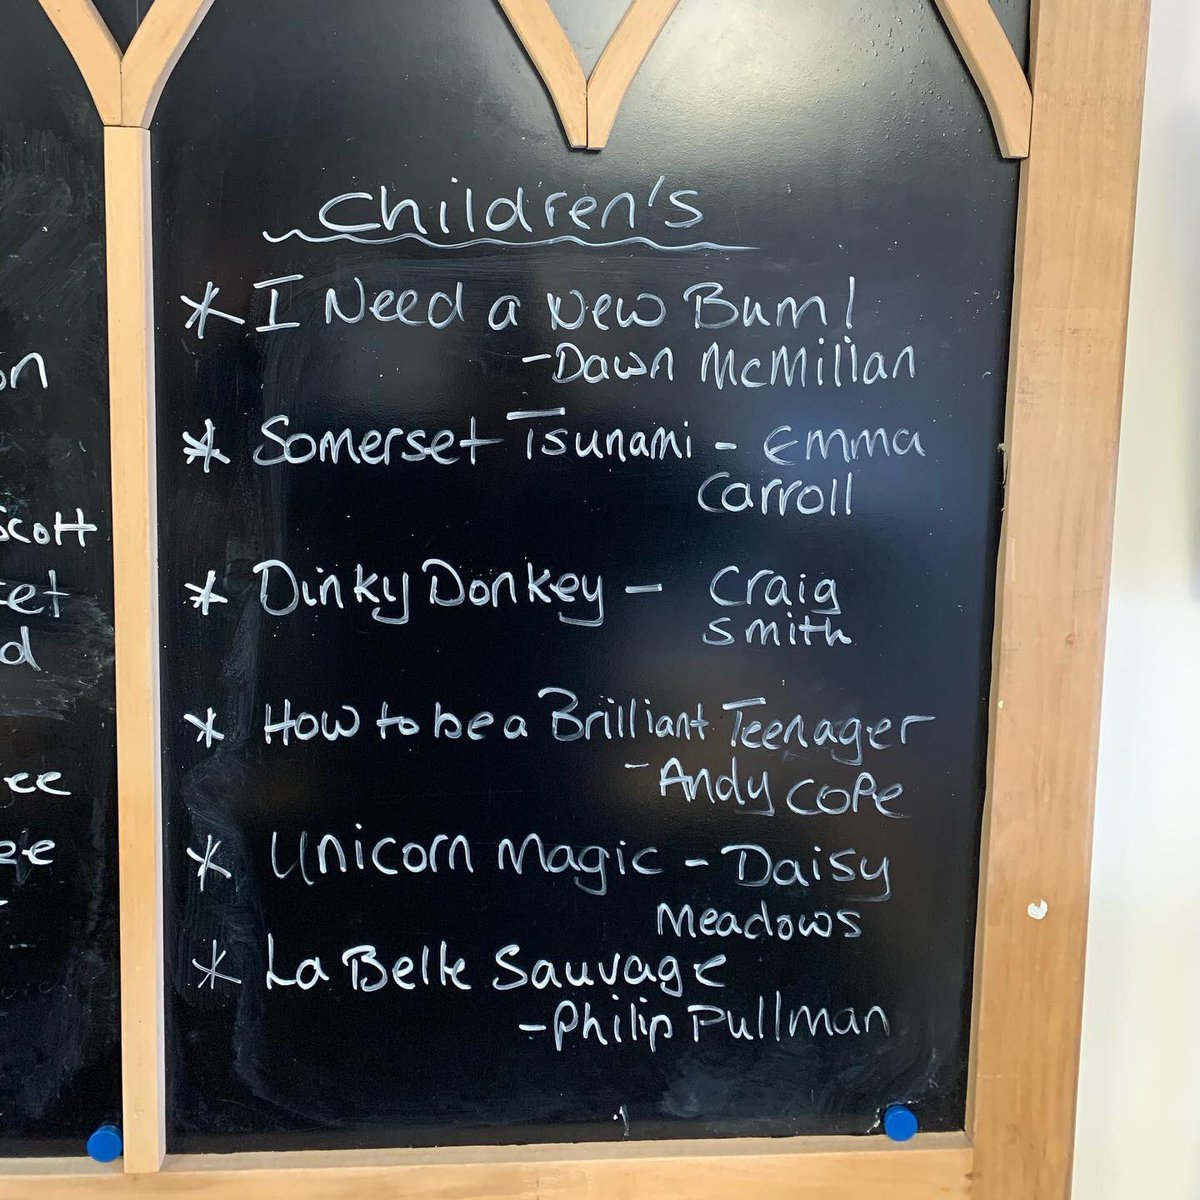 Children's
* I Need a New Bum!
- Dawn McMillan
* Somerset Tsunami - Emma
Carroll
* Dinky Donkey - Craig
Smith
* How to be a Brilliant Teenager
- Andy Cope
* Unicorn Magic - Daisy
Meadows
* La Belle Sauvage
- Philip Pullman
on
Scott
et
d
ee
ee